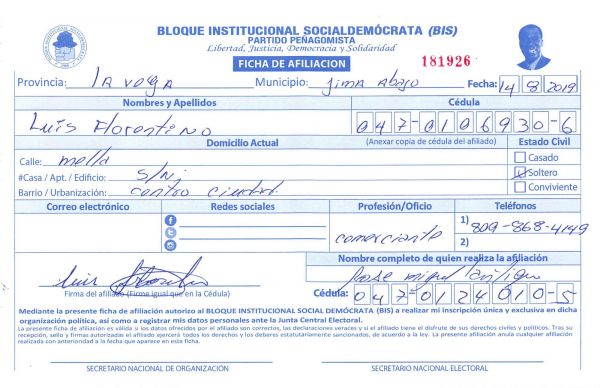 BLOQUE INSTITUCIONAL SOCIALDEMÓCRATA (BIS)
PARTIDO PEÑAGOMISTA
Libertad, Justicia, Democracia y Solidaridad
FICHA DE AFILIACION
181926
Provincia: La vega Municipio: Jima Abajo Fecha: 14 8 2019
Nombres y Apellidos Cédula
Luis Florentino 047-0106930-6
Domicilio Actual (Anexar copia de cédula del afiliado) Estado Civil
Calle: mella Casado
#Casa / Apt. / Edificio: S/N Soltero
Barrio / Urbanización: centro ciudad Conviviente
Correo electrónico Redes sociales Profesión/Oficio Teléfonos
comerciante 1) 809-868-4149
2)
Nombre completo de quien realiza la afiliación
Luis Florentino Jose miguel
Firma del afiliado (Firme igual que en la Cédula) Cédula: 047-0124010-5
Mediante la presente ficha de afiliación autorizo al BLOQUE INSTITUCIONAL SOCIAL DEMÓCRATA (BIS) a realizar mi inscripción única y exclusiva en dicha
organización política, así como a registrar mis datos personales ante la Junta Central Electoral.
La presente ficha de afiliación es válida si los datos ofrecidos por el afiliado son correctos, las declaraciones veraces y si el afiliado tiene el disfrute de sus derechos civiles y políticos. Tras su
recepción, sello y firmas autorizadas el afiliado ejercerá todos los derechos y los deberes estatutariamente sancionados, de acuerdo a la ley. La presente afiliación anula cualquier afiliación
realizada con anterioridad a la fecha que aparece en esta ficha.
SECRETARIO NACIONAL DE ORGANIZACIÓN SECRETARIO NACIONAL ELECTORAL